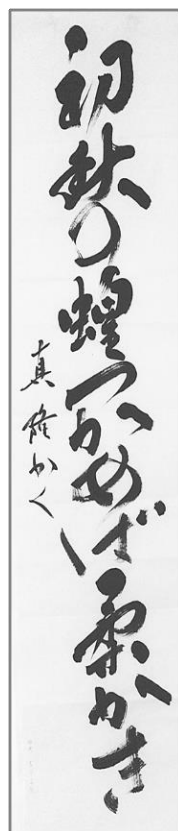 初秋の蝗つかめば柔かき
真隆かく